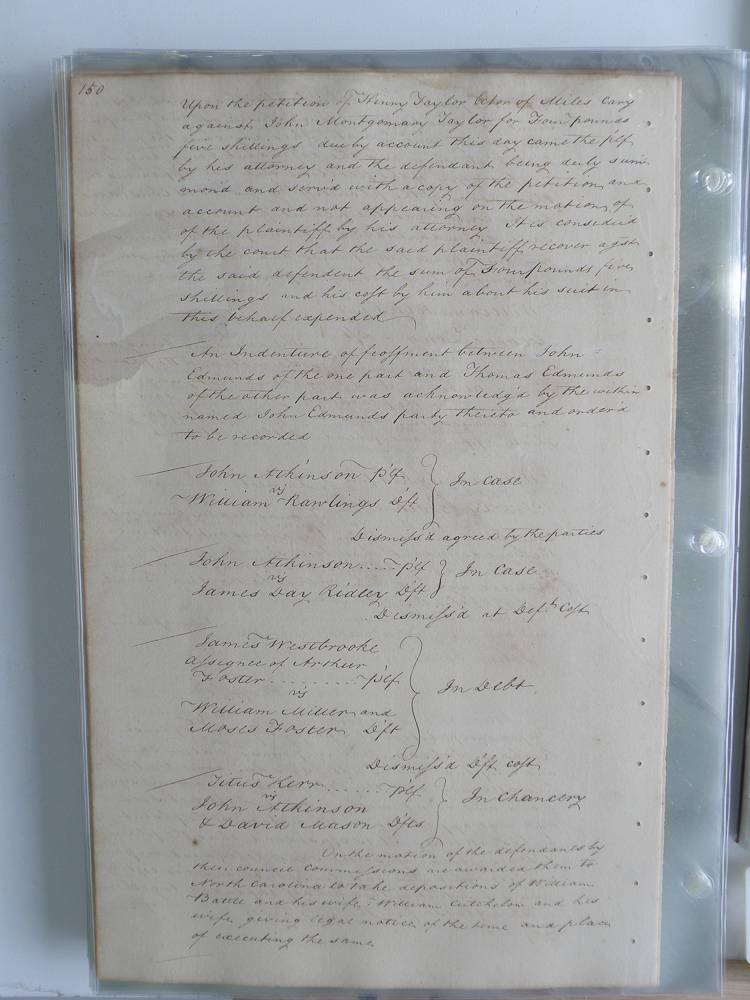 150
Upon the petition of Henry Taylor Extor of Miles Cary
against John Montgomary Taylor for Four pounds
five shillings due by account this day came the plf
by his attorney and the defendant being duly sum
mond and serv'd with a copy of the petition and
account and not appearing on the motion of
of the plaintiff by his attorney It is consider'd
by the court that the said plaintiff recover agst
the said defendent the sum of Four pounds five
shillings and his cost by him about his suit in
this behalf expended
An Indenture of feoffment between John
Edmunds of the one part and Thomas Edmunds
of the other part was acknowledg'd by the within
named John Edmunds party thereto and order'd
to be recorded
John Atkinson Plf
vs In Case
William Rawlings Dft
Dismiss'd agreed by the parties
John Atkinson ..... Plf
vs In Case
James Day Ridley Dft
Dismiss'd at Defts Cost
James Westbrooke
assignee of Arthur
Foster ......... Plf
vs In Debt
William Miller and
Moses Foster Dft
Dismiss'd Dft cost
Titus Kerr ...... Plf
vs In Chancery
John Atkinson
& David Mason Dfts
On the motion of the defendants by
their council Commissions are awarded them to
North Carolina to take depositions of William
Battle and his wife, William and his
wife giving legal notice of the time and place
of executing the same